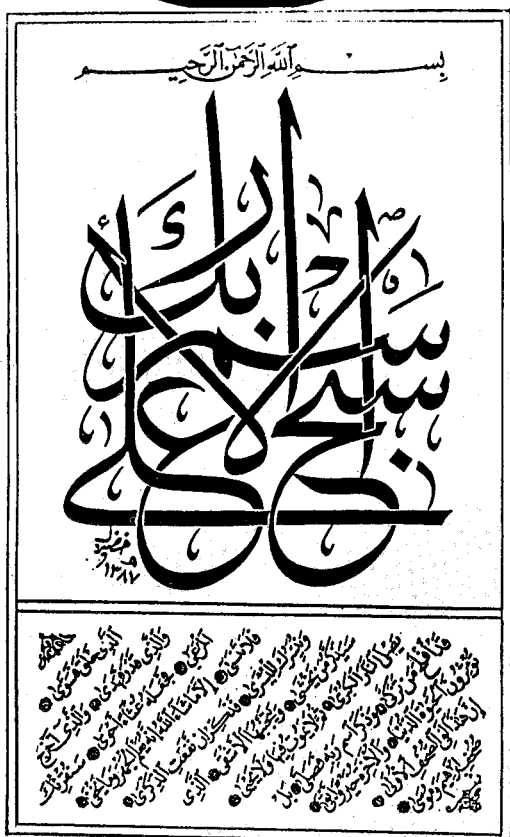 بِسْمِ ٱللَّهِ ٱلرَّحْمَٰنِ ٱلرَّحِيمِ
سَبِّحِ اسْمَ رَبِّكَ الْأَعْلَى
١٣٨٧
الَّذِى خَلَقَ فَسَوَّى
وَالَّذِى قَدَّرَ فَهَدَى وَالَّذِى أَخْرَجَ
الْمَرْعَى فَجَعَلَهُ غُثَاءً أَحْوَى سَنُقْرِئُكَ
فَلَا تَنْسَى إِلَّا مَا شَاءَ اللَّهُ إِنَّهُ يَعْلَمُ الْجَهْرَ وَمَا يَخْفَى
وَنُيَسِّرُكَ لِلْيُسْرَى فَذَكِّرْ إِنْ نَفَعَتِ الذِّكْرَى
سَيَذَّكَّرُ مَنْ يَخْشَى وَيَتَجَنَّبُهَا الْأَشْقَى الَّذِى
يَصْلَى النَّارَ الْكُبْرَى ثُمَّ لَا يَمُوتُ فِيهَا وَلَا يَحْيَى
قَدْ أَفْلَحَ مَنْ تَزَكَّى وَذَكَرَ اسْمَ رَبِّهِ فَصَلَّى بَلْ
تُؤْثِرُونَ الْحَيٰوةَ الدُّنْيَا وَالْآخِرَةُ خَيْرٌ وَأَبْقَى
إِنَّ هَذَا لَفِى الصُّحُفِ الْأُولَى
صُحُفِ إِبْرٰهِيمَ وَمُوسَى